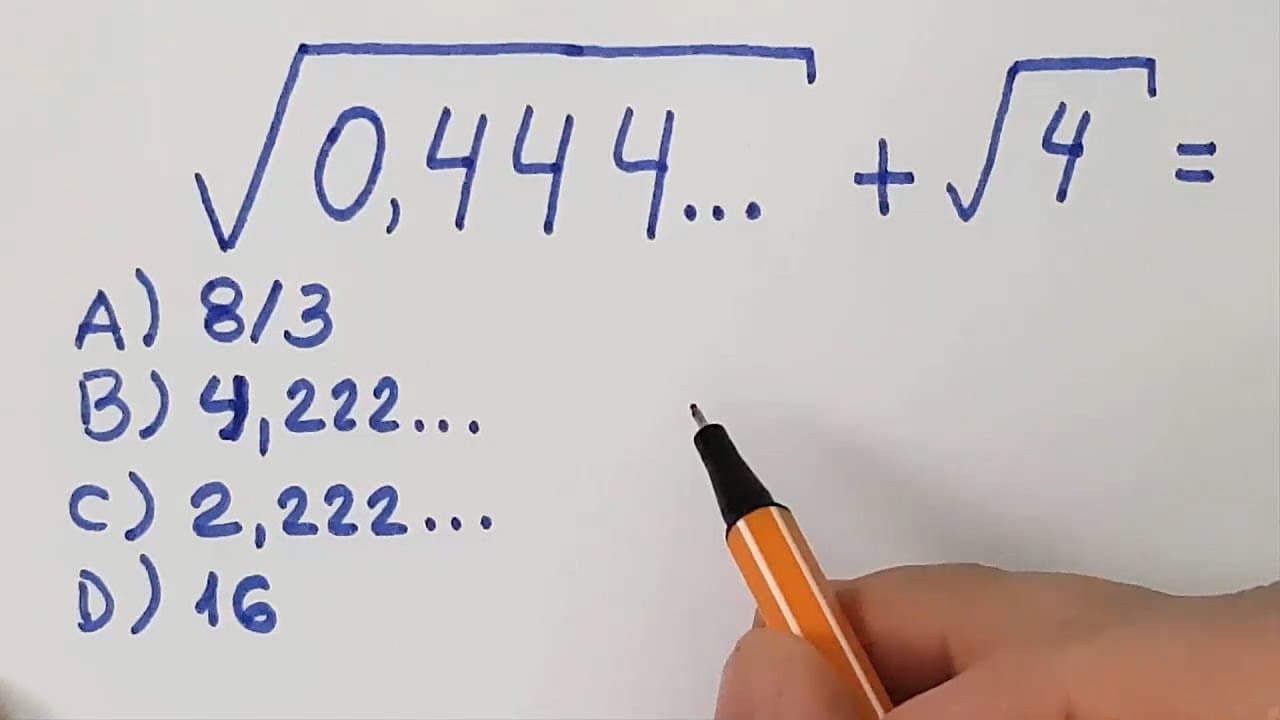 √0,444... + √4 =
A) 8/3
B) 4,222...
C) 2,222...
D) 16